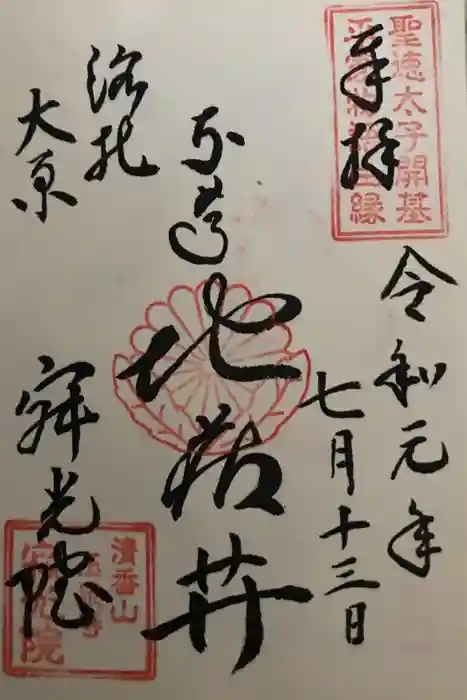 聖徳太子開基
平家物語
縁
奉拝
令和元年
七月十三日
本尊
地蔵𦬇
洛北
大原
寂光院
清香山
寂光院